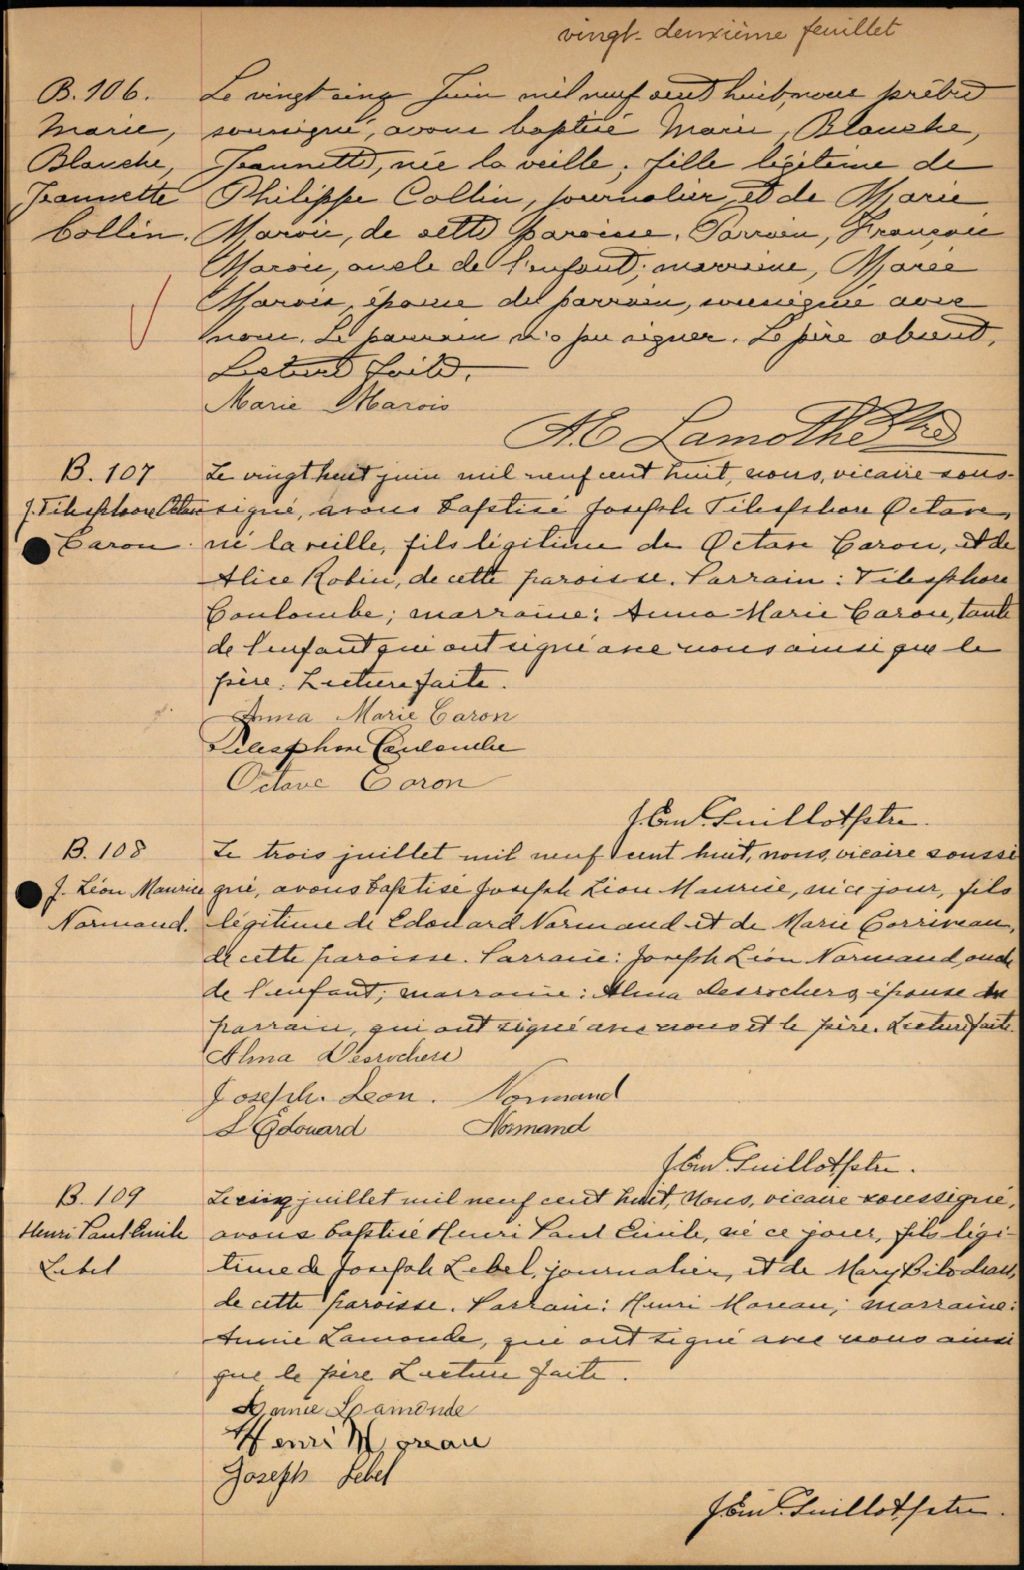 vingt-deuxième feuillet
B. 106.
Marie,
Blanche,
Jeannette
Collin.
Le vingt cinq Juin mil neuf cent huit, nous prêtre
soussigné, avons baptisé Marie, Blanche,
Jeannette, née la veille, fille légitime de
Philippe Collin, journalier, et de Marie
Marois, de cette paroisse. Parrain, François
Marois, oncle de l'enfant; marraine, Marie
Marois, épouse du parrain, soussignée avec
nous. Le parrain n'a pu signer. Le père absent.
Lecture faite.
Marie Marois
A.E Lamothe Ptre
B. 107
J. Télesphore Octave
Caron.
Le vingt huit juin mil neuf cent huit, nous, vicaire sous-
signé, avons baptisé Joseph Télesphore Octave,
né la veille, fils légitime de Octave Caron, et de
Alice Robin, de cette paroisse. Parrain: Télesphore
Coulombe; marraine: Anna-Marie Caron, tante
de l'enfant qui ont signé avec nous ainsi que le
père. Lecture faite.
Anna Marie Caron
Télesphore Coulombe
Octave Caron
J. Em. Guillot ptre.
B. 108
J. Léon Maurice
Normand.
Le trois juillet mil neuf cent huit, nous, vicaire soussi
gné, avons baptisé Joseph Léon Maurice, né ce jour, fils
légitime de Edouard Normand et de Marie Corriveau,
de cette paroisse. Parrain: Joseph Léon Normand, oncle
de l'enfant; marraine: Alma Desrochers, épouse du
parrain, qui ont signé avec nous et le père. Lecture faite.
Alma Desrochers
Joseph. Leon. Normand
L Edouard Normand
J. Em. Guillot ptre.
B. 109
Henri Paul Emile
Lebel
Le cinq juillet mil neuf cent huit, nous, vicaire soussigné,
avons baptisé Henri Paul Emile, né ce jour, fils légi-
time de Joseph Lebel, journalier, et de Mary Bilodeau,
de cette paroisse. Parrain: Henri Moreau; marraine:
Annie Lamonde, qui ont signé avec nous ainsi
que le père Lecture faite.
Annie Lamonde
Henri Moreau
Joseph Lebel
J. Em. Guillot ptre.